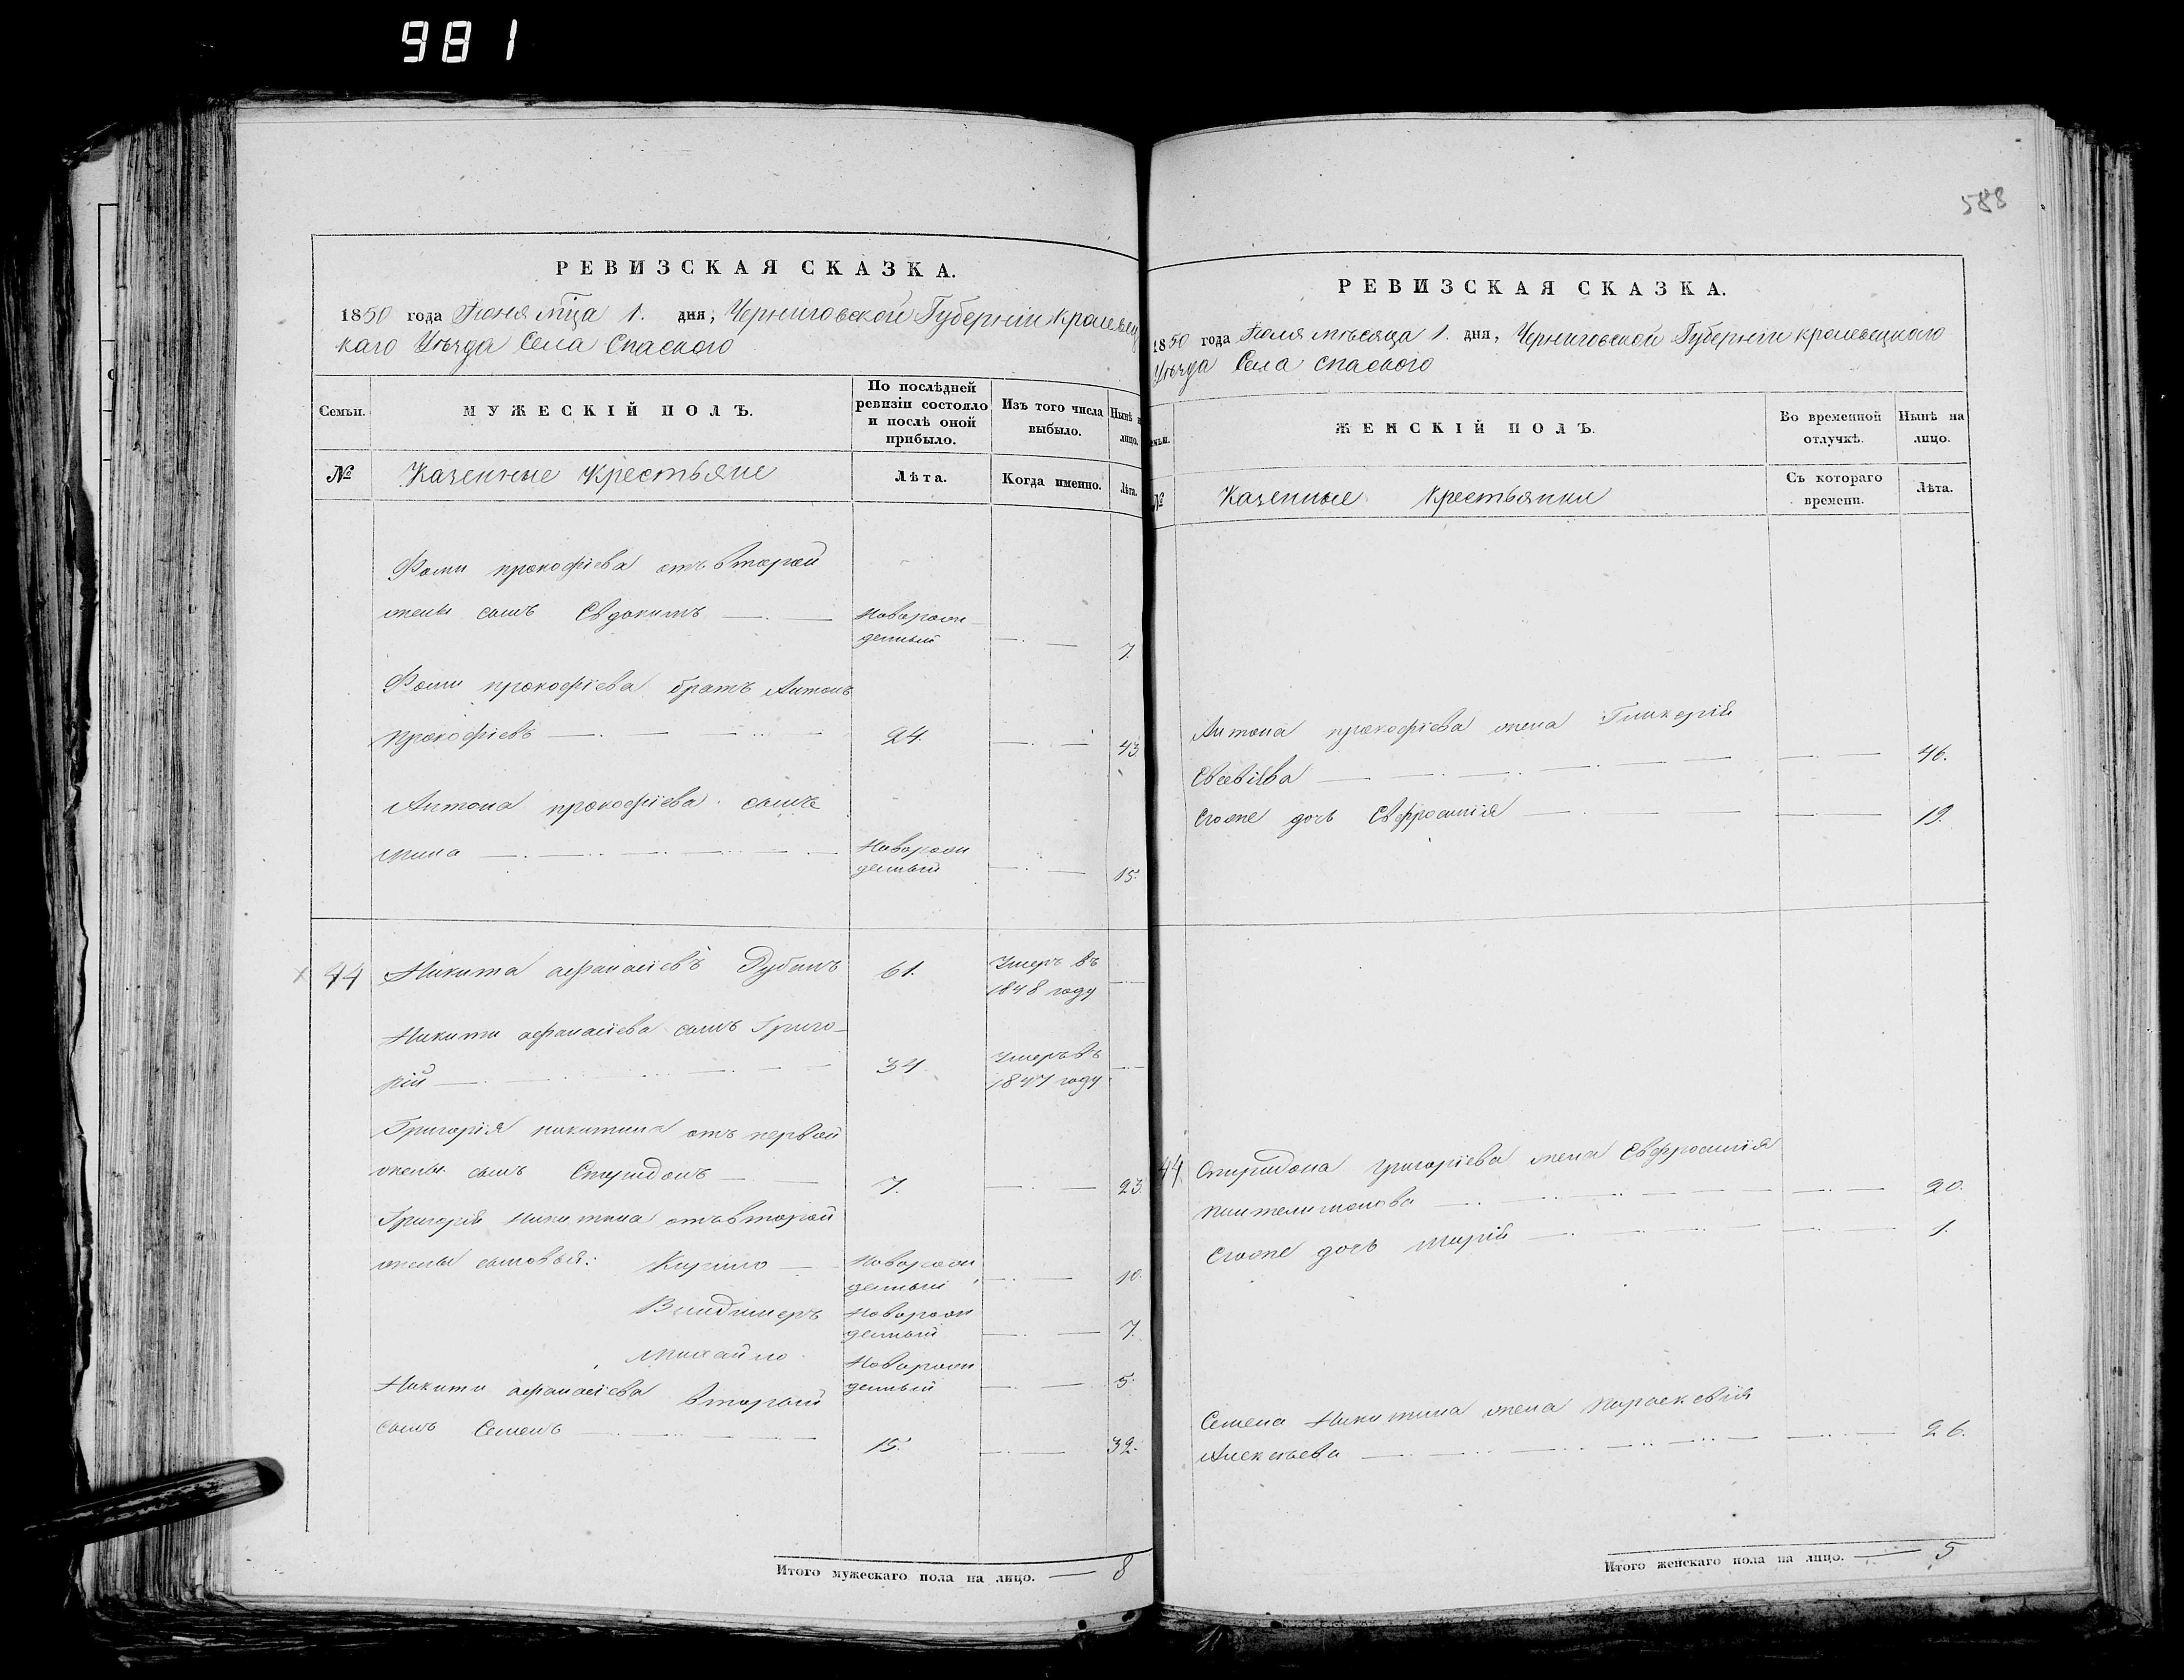 981
588
РЕВИЗСКАЯ СКАЗКА.
1850 года Июня мца 1. дня, Черниговской Губерніи Кролевец
каго Уѣзда Села Спаского
Семьи.
МУЖЕСКІЙ ПОЛЪ.
По послѣдней
ревизіи состояло
и послѣ оной
прибыло.
Изъ того числа
выбыло.
Нынѣ н
лицо.
№
Казенные Крестьяне
Лѣта.
Когда именно.
Лѣта.
Фоми прокофіева отъ второй
жены сынъ Евдокимъ Новорож
денный 7.
Фоми прокофіева братъ Антонъ
прокофіевъ 24. 43
Антона прокофіева сынъ
мина Новорож
денный 15.
44 Никита афанасіевъ Губанъ 61. Умеръ въ
1848 году
Никити афанасіева сынъ Григо-
рій 34. Умеръ въ
1847 году
Григорія никитина отъ первой
жены сынъ Спиридонъ 7. 23.
Григорія Никитина отъ второй
жены сыновья: Кирило Новорож
денный 10.
Владимеръ Новорож
денный 7.
Михайло Новорож
денный 5.
Никити афанасіева вторый
сынъ Семенъ 15. 32.
Итого мужескаго пола на лицо. — 8
РЕВИЗСКАЯ СКАЗКА.
1850 года Июля мѣсяца 1. дня, Черниговской Губерніи кролевецкаго
Уѣзда Села спаского
емьи.
ЖЕНСКІЙ ПОЛЪ.
Во временной
отлучкѣ.
Нынѣ на
лицо.
№
Казенные Крестьянки
Съ котораго
времени.
Лѣта.
Антона прокофіева жена Гликерія
Евсевіева 46.
Егоже дочь Евфросинія 19.
44 Спиридона григоріева жена Евфросинія
пантелимонова 20.
Егоже дочь марія 1.
Семена Никитина жена параскевія
Алексѣева 26.
Итого женскаго пола на лицо. — 5